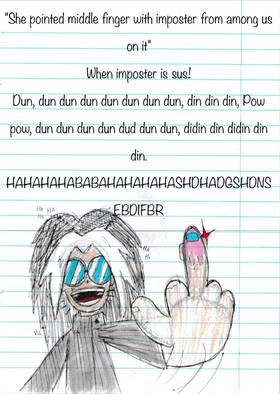 "She pointed middle finger with imposter from among us
on it"
When imposter is sus!
Dun, dun dun dun dun dun dun dun, din din din, Pow
pow, dun dun dun dun dud dun dun, didin din didin din
din.
HAHAHAHABABAHAHAHAHASHDHADGSHDNS
EBDIFBR